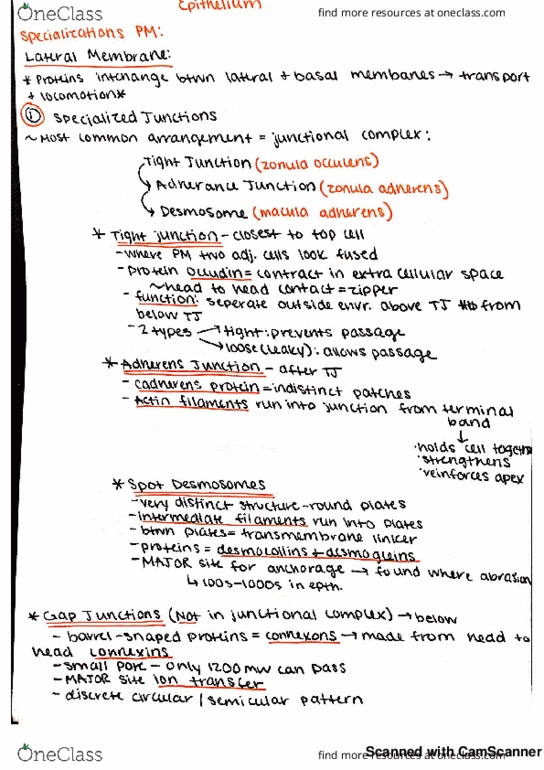 OneClass
find more resources at oneclass.com
Epithelium
Specializations PM:
Lateral Membrane:
* Proteins interchange btwn lateral + basal membanes → transport
+ locomotion*
① Specialized Junctions
~ Most common arrangement = junctional complex:
Tight Junction (zonula occulens)
Adherance Junction (zonula adherens)
Desmosome (macula adherens)
* Tight junction - closest to top cell
- where PM two adj. cells look fused
- protein occudin = contract in extra cellular space
~head to head contact = zipper
- function: seperate outside envr. above TJ from
below TJ
- 2 types → tight: prevents passage
→ loose (leaky): allows passage
* Adherens Junction - after TJ
- cadherens protein = indistinct patches
- Actin filaments run into junction from terminal
band
↓
· holds cell together
· strengthens
· reinforces apex
* Spot Desmosomes
- very distinct structure - round plates
- intermediate filaments run into plates
- btwn plates = transmembrane linker
- proteins = desmocollins + desmogleins
- MAJOR site for anchorage → found where abrasion
↳ 100s-1000s in epth.
* Gap Junctions (Not in junctional complex) → below
- barrel-shaped proteins = connexons → made from head to
head connexins
- small pore - only 1200 mw can pass
- MAJOR site ion transfer
- discrete circular / semicular pattern
OneClass
find more resources at oneclass.com
Scanned with CamScanner